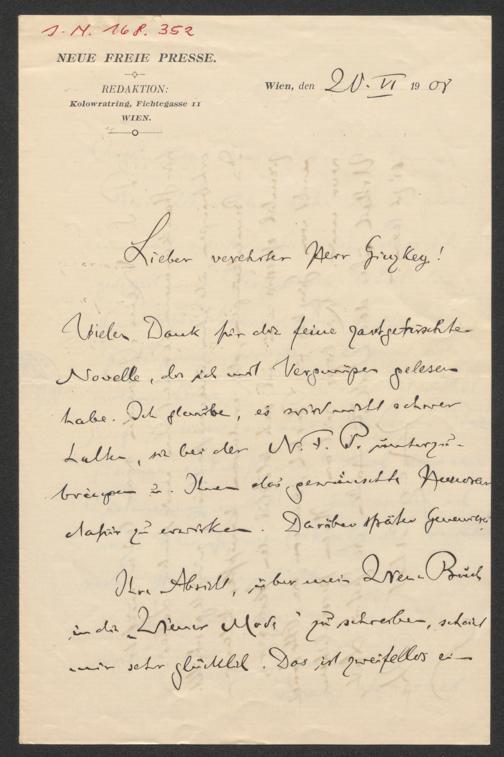 J. N. 168.352
NEUE FREIE PRESSE.
REDAKTION:
Kolowratring, Fichtegasse 11
WIEN.
Wien, den 20. VI 1908
Lieber verehrter Herr Ginzkey!
Vielen Dank für die feine zartgetuschte
Novelle, die ich mit Vergnügen gelesen
habe. Ich glaube, es wird nicht schwer
halten, sie bei der N. F. P. unterzu-
bringen u. Ihnen das gewünschte Honorar
dafür zu erwirken. Darüber später Genaueres.
Ihre Absicht, über mein Wien-Buch
in die „Wiener Mode" zu schreiben, scheint
mir sehr glücklich. Das ist zweifellos ein